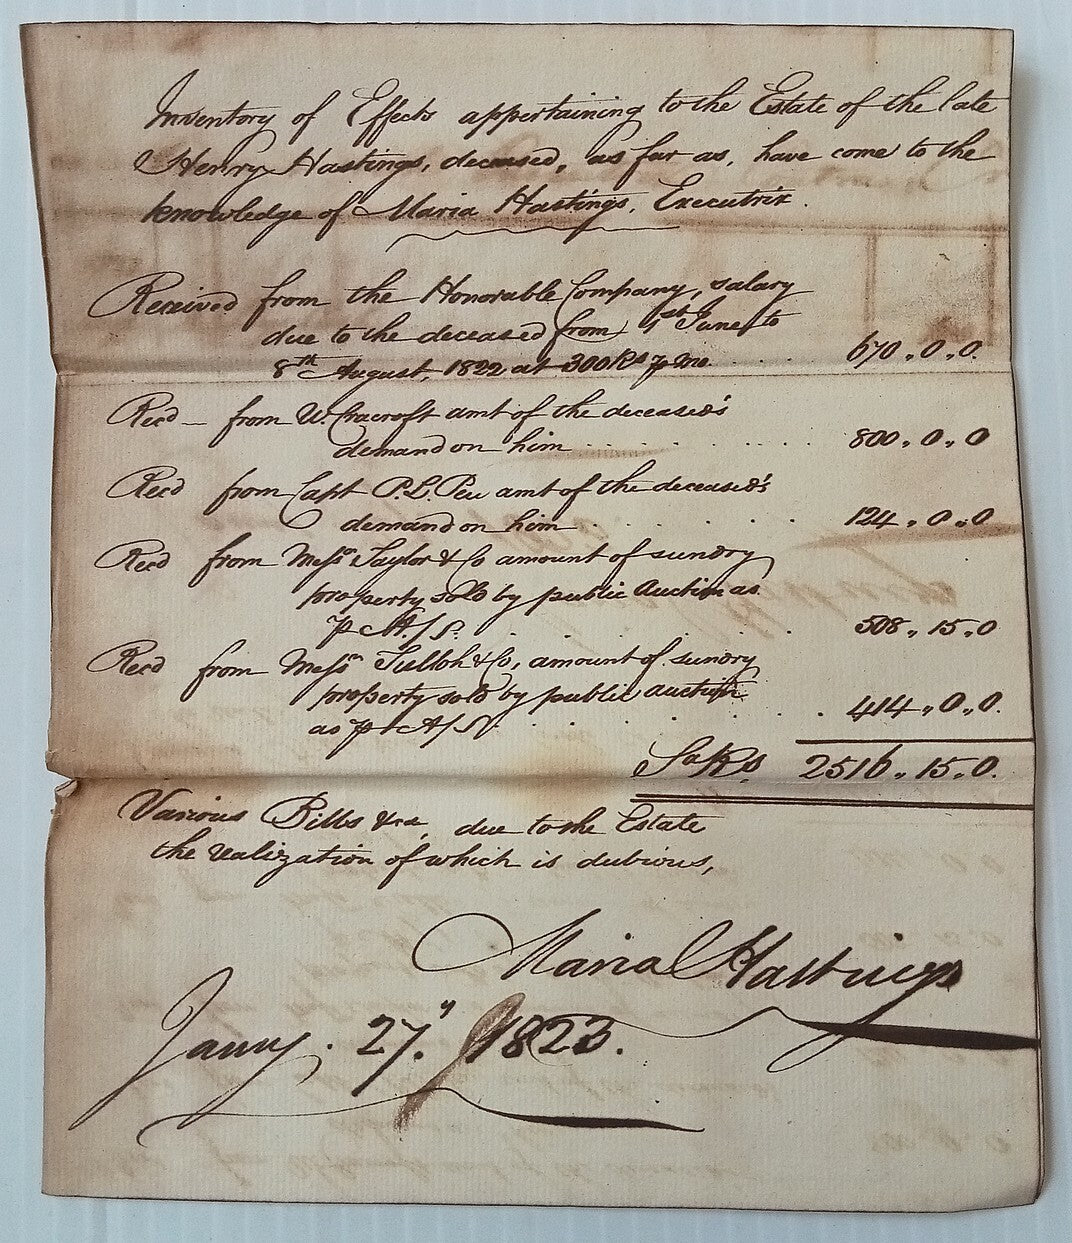 Inventory of Effects appertaining to the Estate of the late
Henry Hastings, deceased, as far as, have come to the
knowledge of Maria Hastings, Executrix.
Received from the Honorable Company, salary
due to the deceased from 1st June to
8th August, 1822 at 300 Rs p Mo. 670 „ 0 „ 0.
Recd — from W. Cracroft amt of the deceased's
demand on him 800 „ 0 „ 0
Recd from Capt P. L. Pew amt of the deceased's
demand on him 124 „ 0 „ 0
Recd from Messrs Taylor & Co amount of sundry
property sold by public Auction as
p A/S. 508 „ 15 „ 0
Recd from Messrs Tulloh & Co, amount of sundry
property sold by public auction
as p A/S. 414 „ 0 „ 0.
Sa Rs 2516 „ 15 „ 0.
Various Bills &ca, due to the Estate
the realization of which is dubious,
Maria Hastings
Jany. 27. 1823.